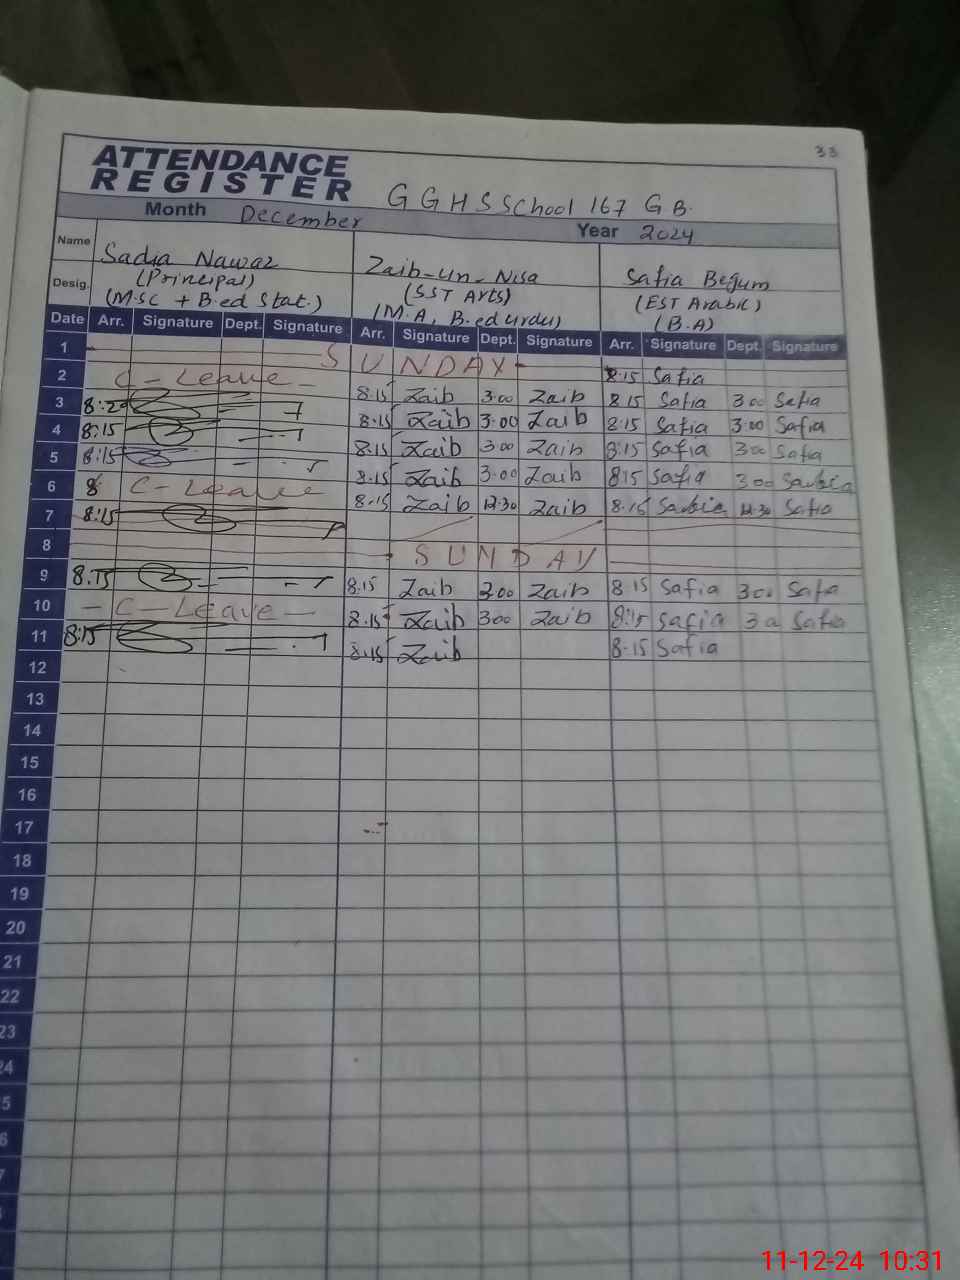 33
ATTENDANCE
REGISTER
GGHS School 167 GB.
Month December Year 2024
Name Sadia Nawaz Zaib-un-Nisa Safia Begum
Desig. (Principal) (SST Arts) (EST Arabic)
(M.SC + B.ed Stat.) (M.A, B.ed urdu) (B.A)
Date Arr. Signature Dept. Signature Arr. Signature Dept. Signature Arr. Signature Dept. Signature
1 SUNDAY
2 C-Leave 8:15 Zaib 3:00 Zaib 8:15 Safia
3 8:20 8:15 Zaib 3:00 Zaib 8:15 Safia 3:00 Safia
4 8:15 8:15 Zaib 3:00 Zaib 8:15 Safia 3:00 Safia
5 8:15 8:15 Zaib 3:00 Zaib 8:15 Safia 3:00 Safia
6 8 C-Leave 8:15 Zaib 12:30 Zaib 8:15 Safia 3:00
7 8:15 8:15 12:30 Safia
8 SUNDAY
9 8:15 8:15 Zaib 3:00 Zaib 8:15 Safia 3:00 Safia
10 -C-Leave- 8:15 Zaib 3:00 Zaib 8:15 Safia Safia
11 8:15 8:15 Zaib 8:15 Safia
12
13
14
15
16
17
18
19
20
21
22
23
24
5
6
7
11-12-24 10:31